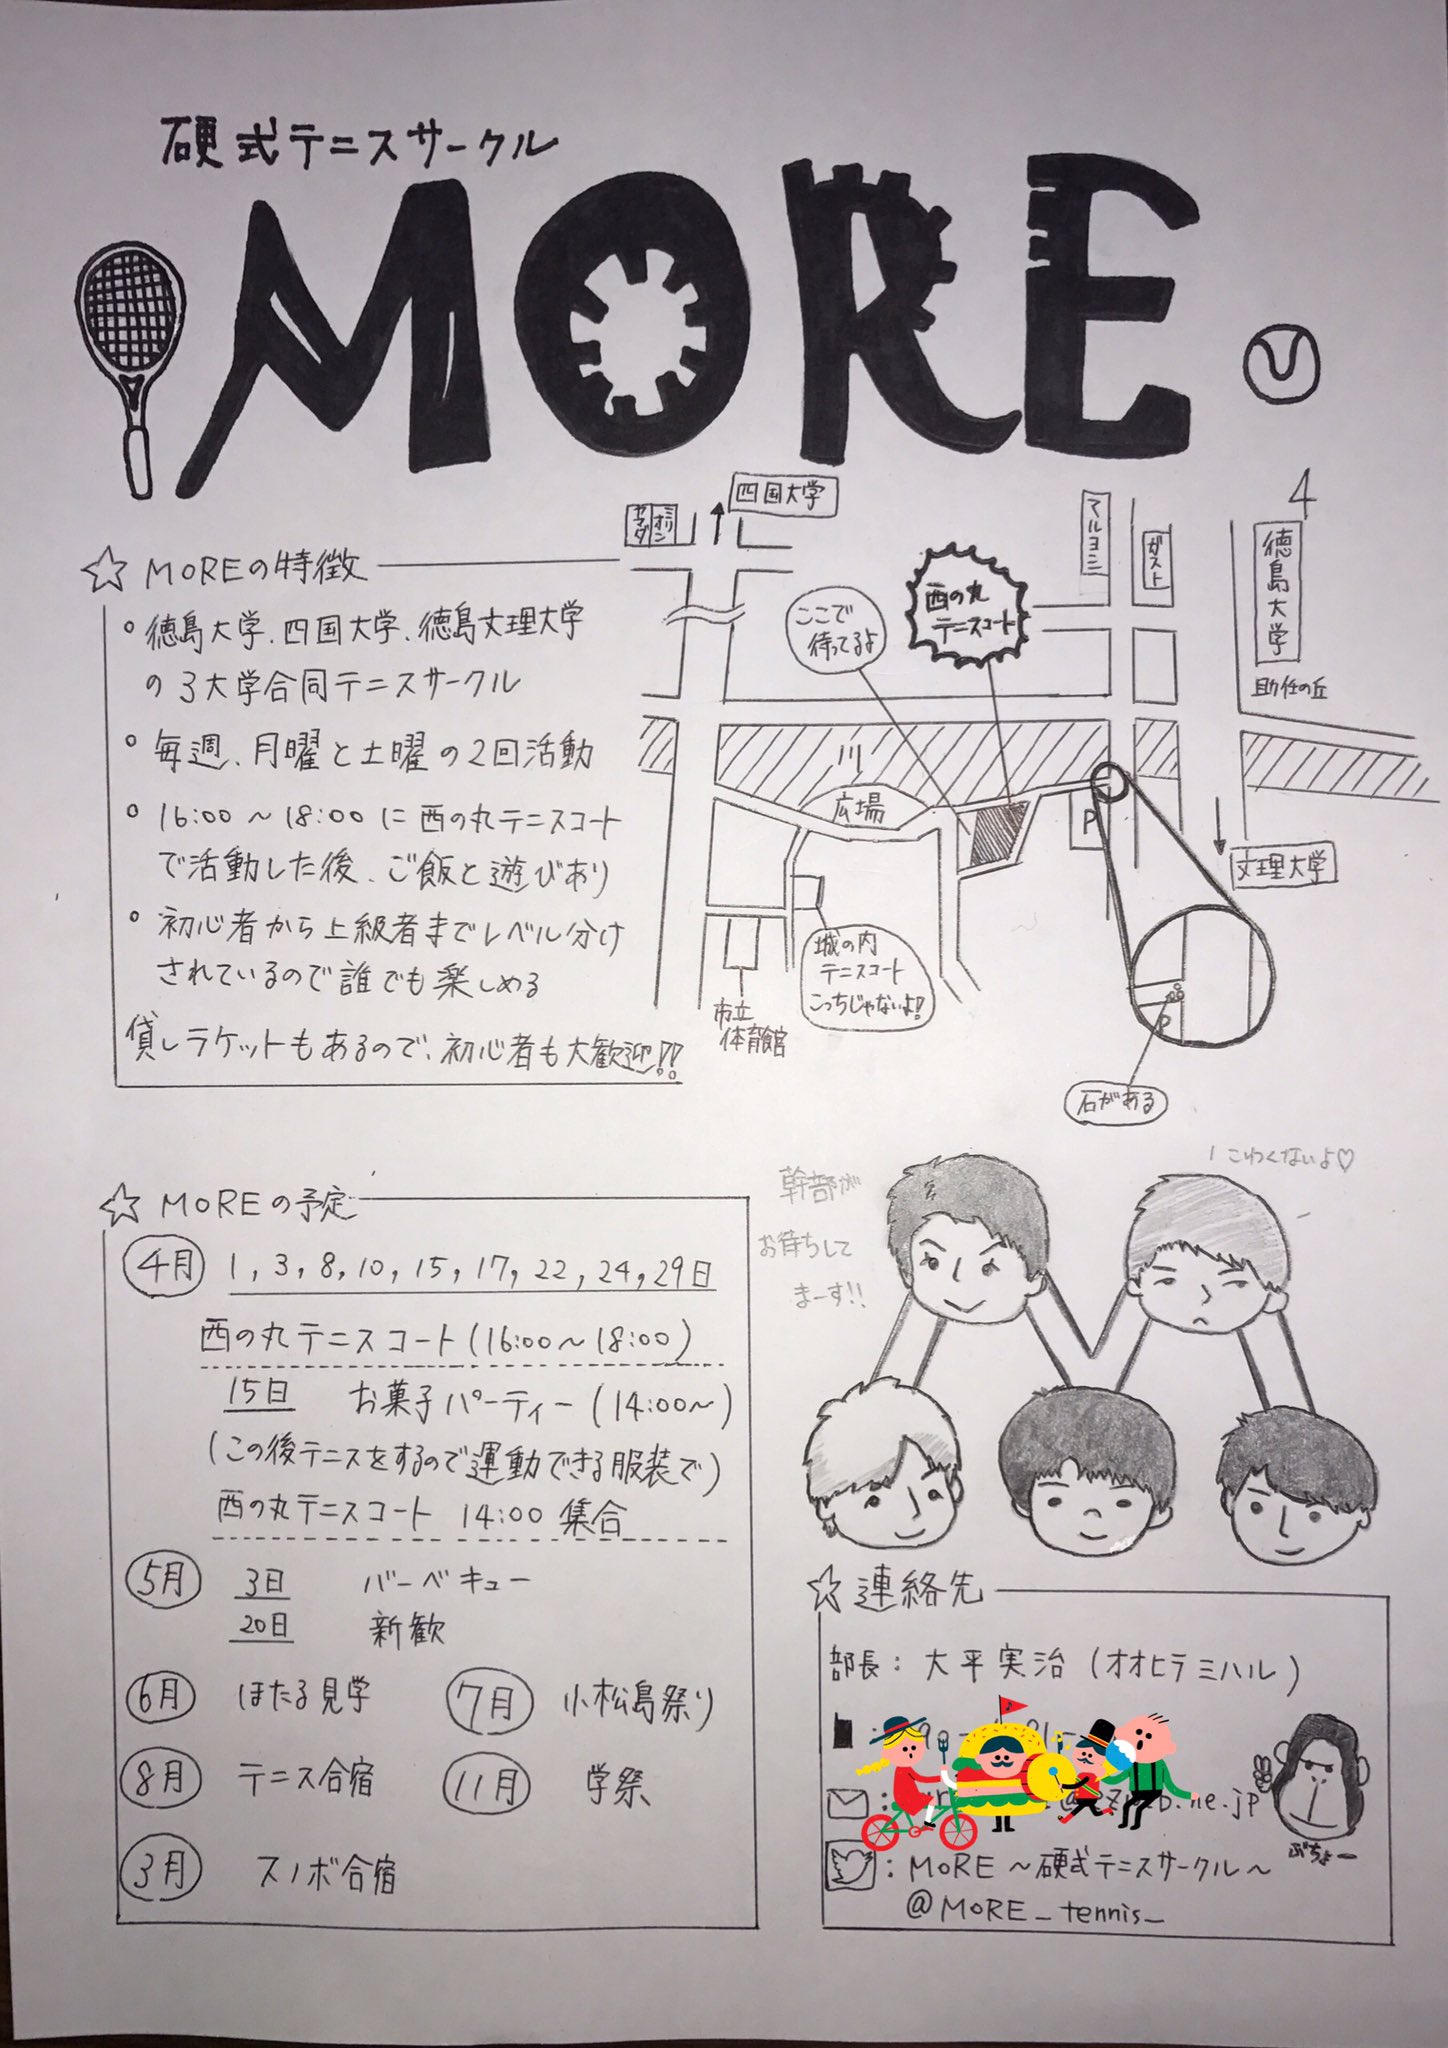 硬式テニスサークル
MORE
☆ MOREの特徴
。徳島大学、四国大学、徳島文理大学
の3大学合同テニスサークル
。毎週、月曜と土曜の2回活動
。16:00～18:00に西の丸テニスコート
で活動した後、ご飯と遊びあり
。初心者から上級者までレベル分け
されているので誰でも楽しめる
貸しラケットもあるので、初心者も大歓迎!!
ミリオン
ヤマダ
四国大学
マルヨシ
ガスト
4
徳島大学
助任の丘
ここで
待ってるよ
西の丸
テニスコート
川
広場
P
文理大学
城の内
テニスコート
こっちじゃないよ!
市立
体育館
P
石がある
☆ MOREの予定
4月 1, 3, 8, 10, 15, 17, 22, 24, 29日
西の丸テニスコート(16:00～18:00)
15日 お菓子パーティー(14:00～)
(この後テニスをするので運動できる服装で)
西の丸テニスコート 14:00 集合
5月 3日 バーベキュー
20日 新歓
6月 ほたる見学 7月 小松島祭り
8月 テニス合宿 11月 学祭
3月 スノボ合宿
幹部が
お待ちして
まーす!!
こわくないよ♡
☆ 連絡先
部長: 大平実治(オオヒラ ミハル)
.ne.jp
ぶちょー
: MORE ～硬式テニスサークル～
@MORE_tennis_